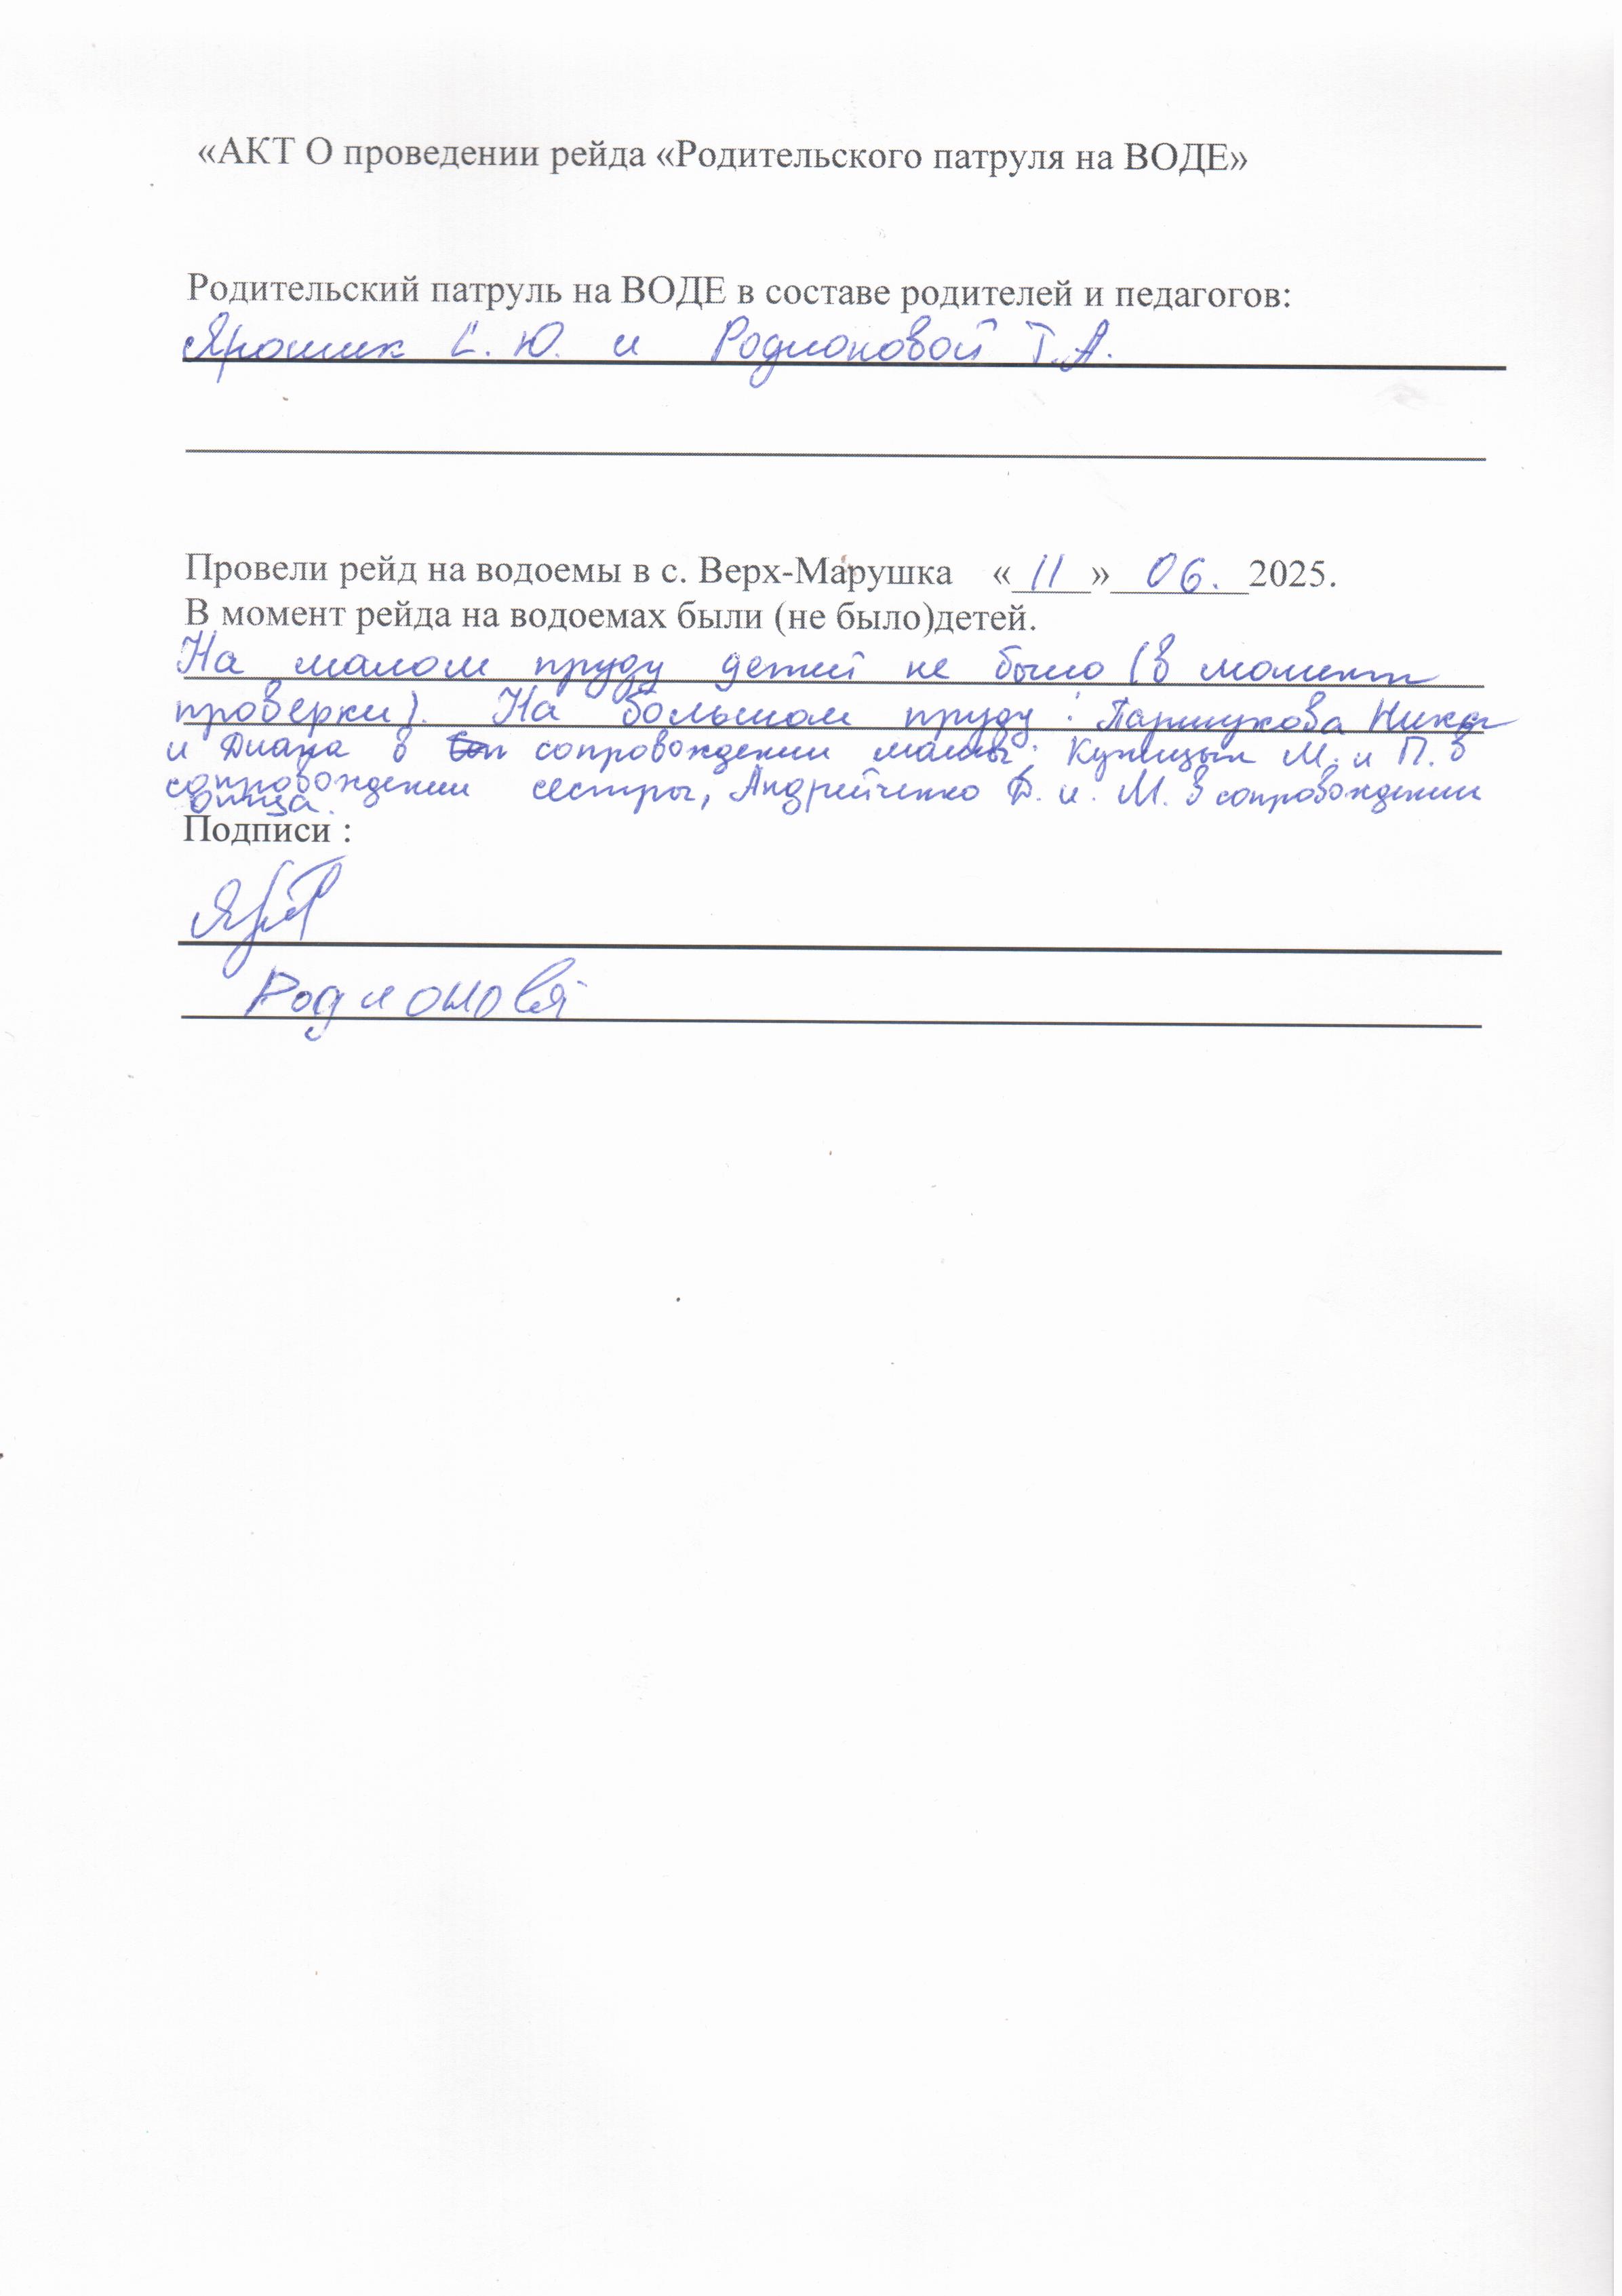 «АКТ О проведении рейда «Родительского патруля на ВОДЕ»
Родительский патруль на ВОДЕ в составе родителей и педагогов:
Ярошик С. Ю. и Родионовой Т.А.
Провели рейд на водоемы в с. Верх-Марушка «11» 06. 2025.
В момент рейда на водоемах были (не было)детей.
На малом пруду детей не было (в момент
проверки). На большом пруду: Паршукова Ника
и Диана в сопровождении мамы. Купицын М. и П. в
сопровождении сестры, Андрейченко Д. и. М. в сопровождении
отца.
Подписи :
Родионова